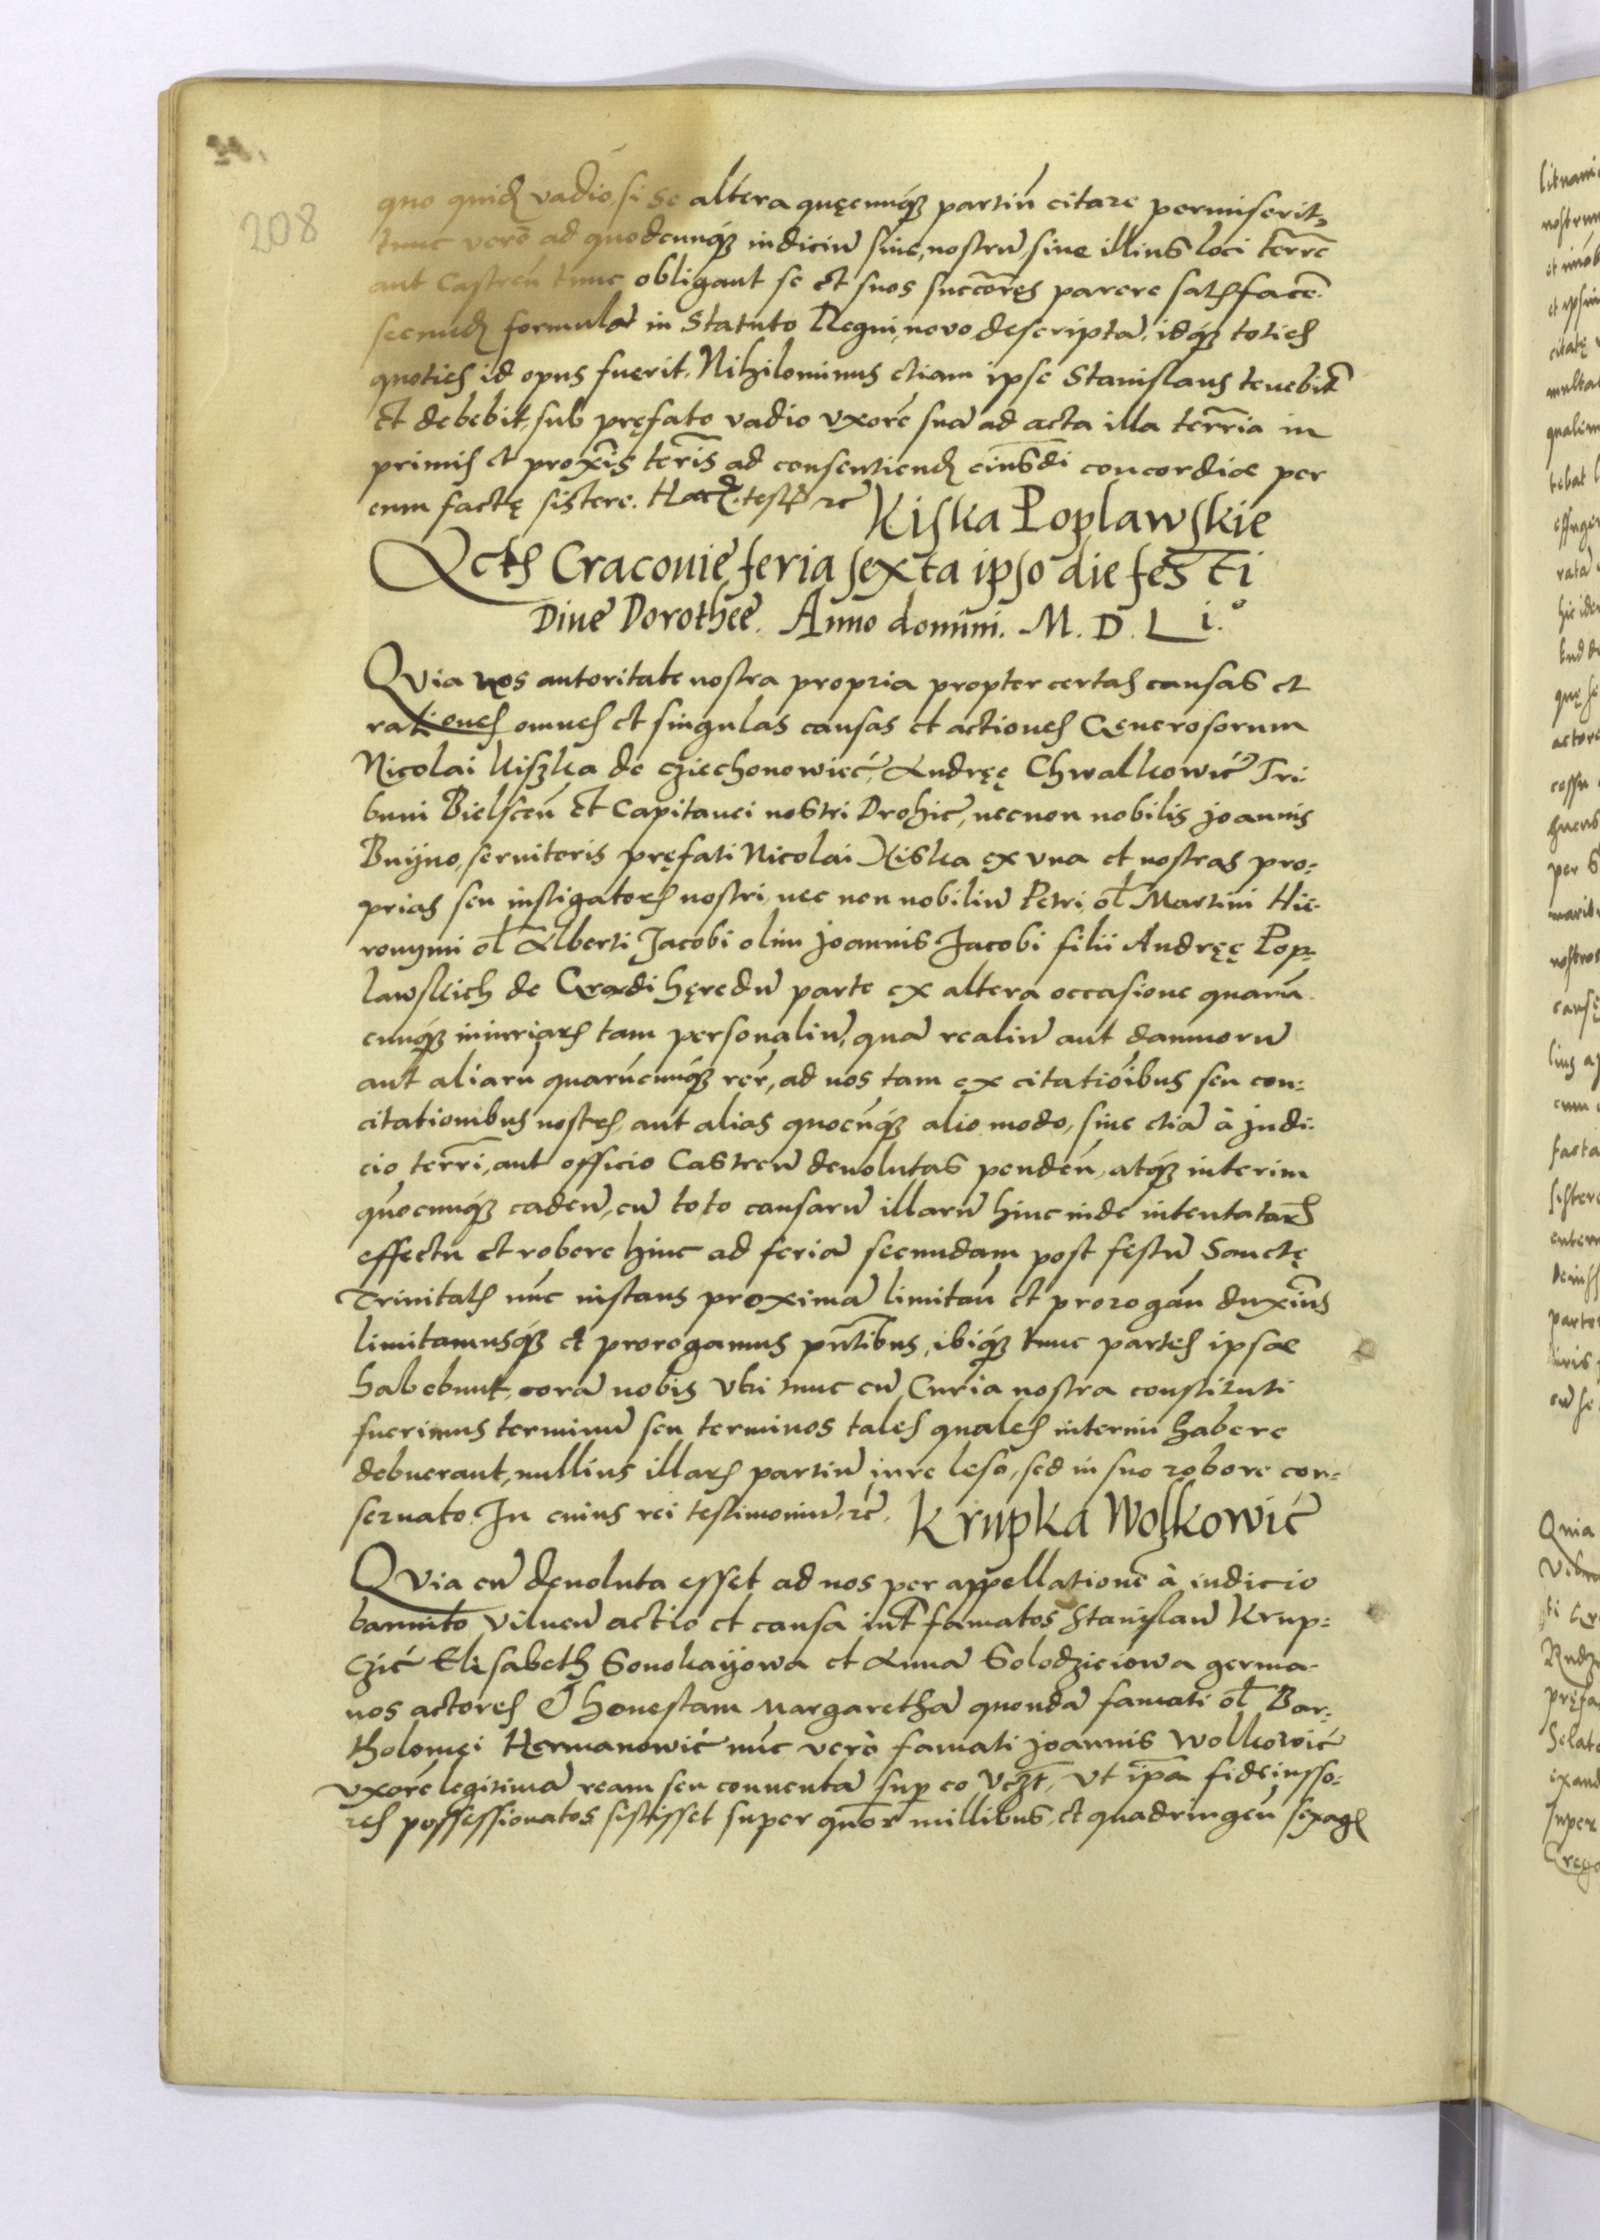 208
quo quid vadio, si se altera quęcunq partiū citare permiserit,
tunc vero ad quodcunq iudiciū siue nostrū siue illius loci terrē
aut Castreń tunc obligant se et suos succōręs parere satisfacē.
secund formulā in Statuto Regni, novo descriptā, idq toties
quoties id opus fuerit. Nihilominus etiam ipse Stanislaus tenebit
et debebit, sub pręfato vadio vxorē suā ad acta illa terrīa in
primis et proxīs terīs ad consentiend eiusdī concordiæ per
eum factę sistere. Har testi rc Kiska Poplawskie
Acts Cracouię feria sexta ipso die festi
Diuę Dorotheę. Anno domini. M. D. L i.°
Quia nos autoritate nostra propria propter certas causas et
rationes omnes et singulas causas et actiones Generosorum
Nicolai kiszka de cziechonowieć, Andręę Chwalkowić Tri
buni Bielsceń et Capitanei nostri Drohic, necnon nobilis Joannis
Buijno, seruitoris pręfati Nicolai Kiska ex vna et nostras pro-
prias seu instigatoris nostri, nec non nobiliū Petri, ol Martini Hie-
ronymi ol Alberti Jacobi olim Joannis Jacobi filii Andręę Pop-
lawskich de Grodi hęredū parte ex altera occasione quarū
cunq iniuriar tam personaliū, quā realiū aut damnorū
aut aliarū quarūcunq rer, ad nos tam ex citatioībus seu con-
citationibus nostris aut alias quocūq alio modo, siue etiā à Judi-
cio terrī, aut officio Castreń deuolutas pendeń, atq interim
quocunq cadeń, cū toto causarū illarū hinc inde intentatar
effectu et robore hinc ad feriā secundam post festū Sanctę
Trinitatis nūc instans proximā limitań et prorogań duxīus
limitamusq et prorogamus pntibus, ibiq tunc partes ipsae
habebunt, corā nobis vbi tunc cū Curia nostra constituti
fuerimus terminū seu terminos tales quales interim habere
debuerant, nullius illar partiū iure leso, sed in suo robore con-
seruato. In cuius rei testimoniū, rc. Krupka Wolkowić
Quia cū deuoluta esset ad nos per appellationē à iudicio
bannito Vilneń actio et causa int famatos Stanislaū Krup-
czić Elisabeth Sonokayowa et Annā Solodzieiowa germa-
nos actores & honestam Margarethā quondā famati ol Bar-
tholomęi Hermanowić nūc verò famati Joannis Wolkowić
vxorē legitimā ream seu conuentā sup eo Vczt, vt ipa fideiusso-
res possessionatos sistisset super quor millibus, et quadringeń sexag